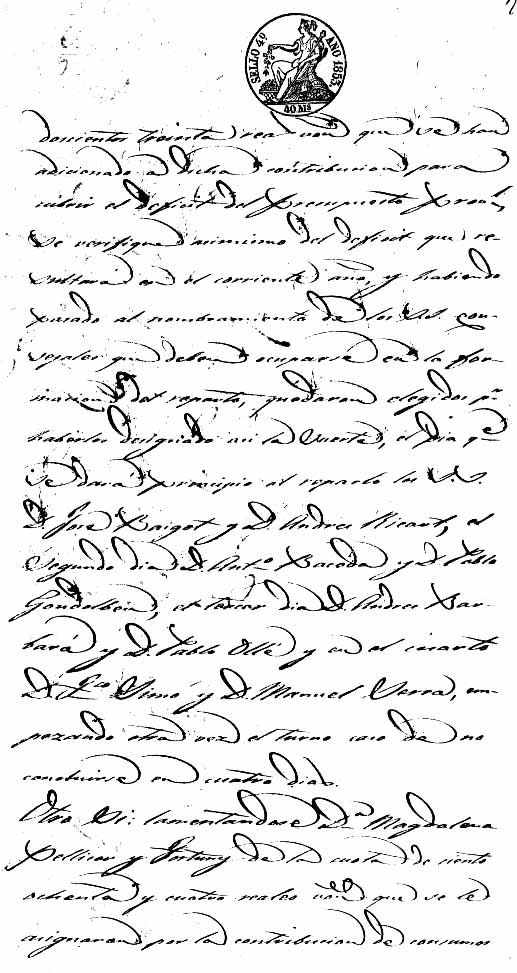 SELLO 4º AÑO 1853.
40 Ms
docientos treinta rea von que se han
adicionado a dicha contribucion para
cubrir el deficit del Presupuesto Provl,
se verifique asimismo del deficit que re-
sultara en el corriente año, y habiendo
pasado al nombramiento de los SS. con-
sejales que deben ocuparse en la for-
macion del reparto, quedaron elegidos pr
haberlos designado asi la Suerte, el dia qe
se dara principio al reparto los S.S.
D. José Baiget y D. Andres Ricart, el
segundo dia D. Antº y D. Pablo
el tercer dia D. Andres Bar-
bará y D. Pablo Ollé y en el cuarto
D. Fco Simó y D. Manuel Serra, em-
pezando otra vez el turno caso de no
concluirse en cuatro dias.
Otro Si: lamentandose Dª Magdalena
Pellicer y Fortuny de la cuota de ciento
ochenta y cuatro reales von que se le
asignaron por la contribucion de consumos